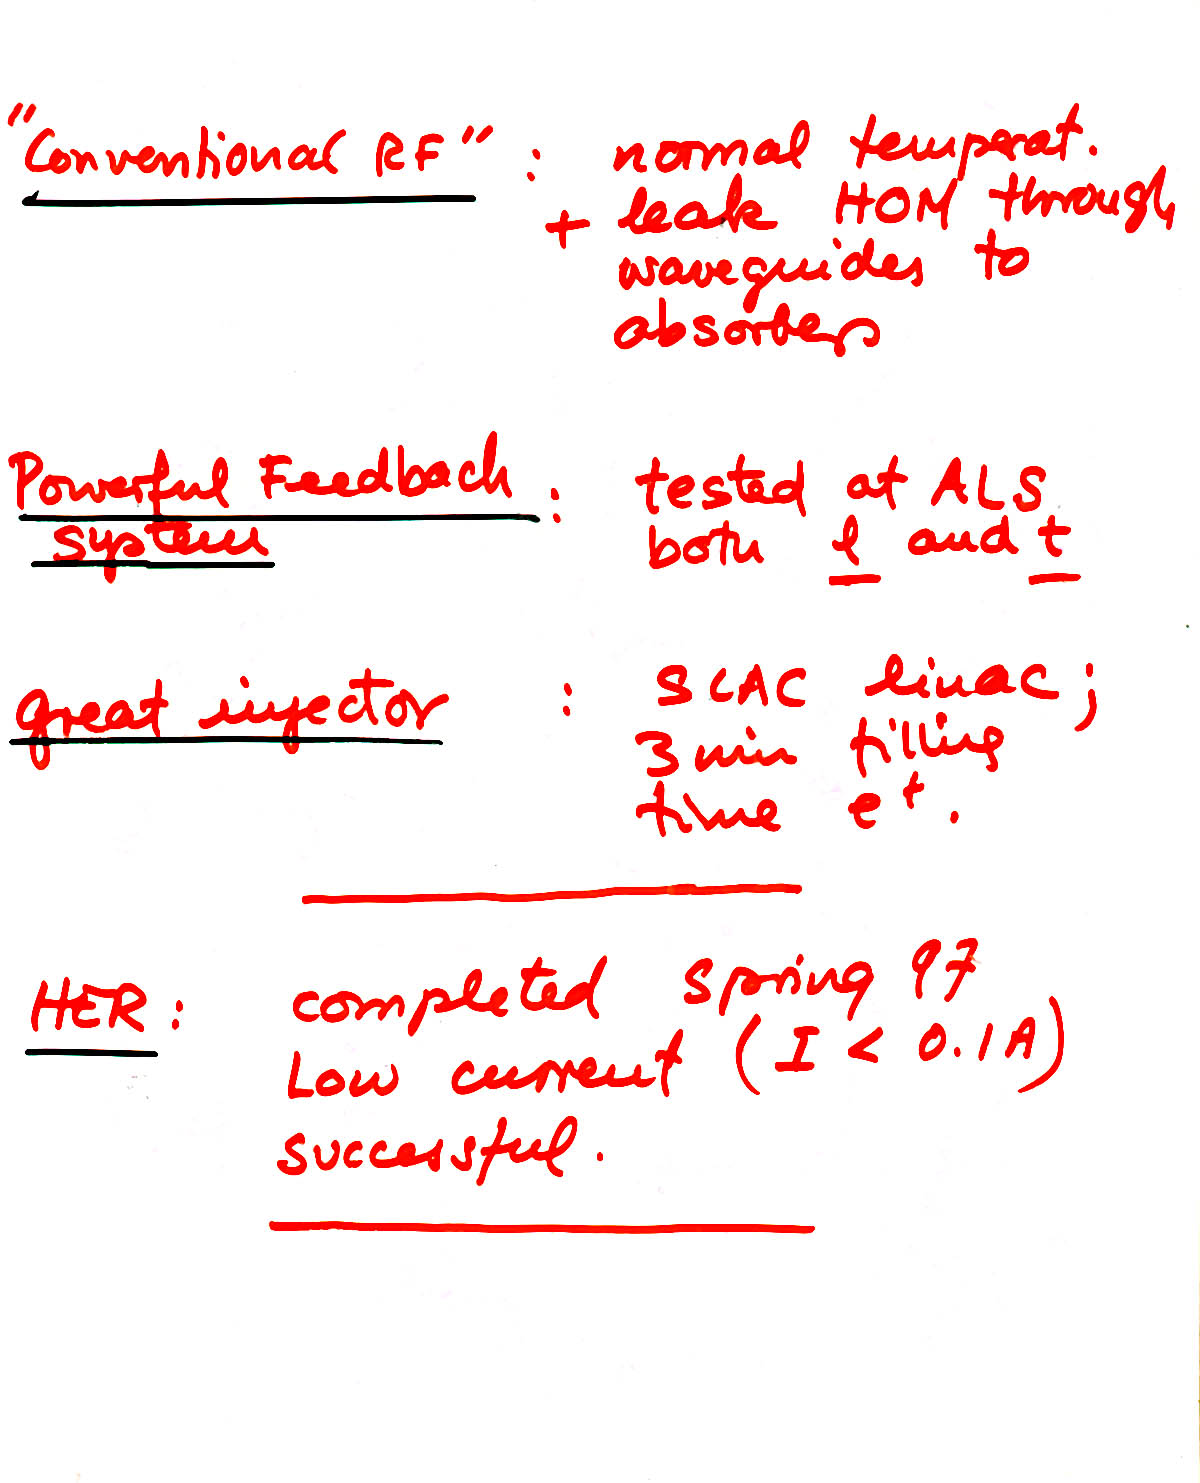 "Conventional RF" : normal temperat.
+ leak HOM through
waveguides to
absorbers
Powerful Feedback : tested at ALS
system both l and t
great injector : SLAC linac;
3 min filling
time e⁺.
HER: completed Spring 97
Low current (I < 0.1A)
successful.